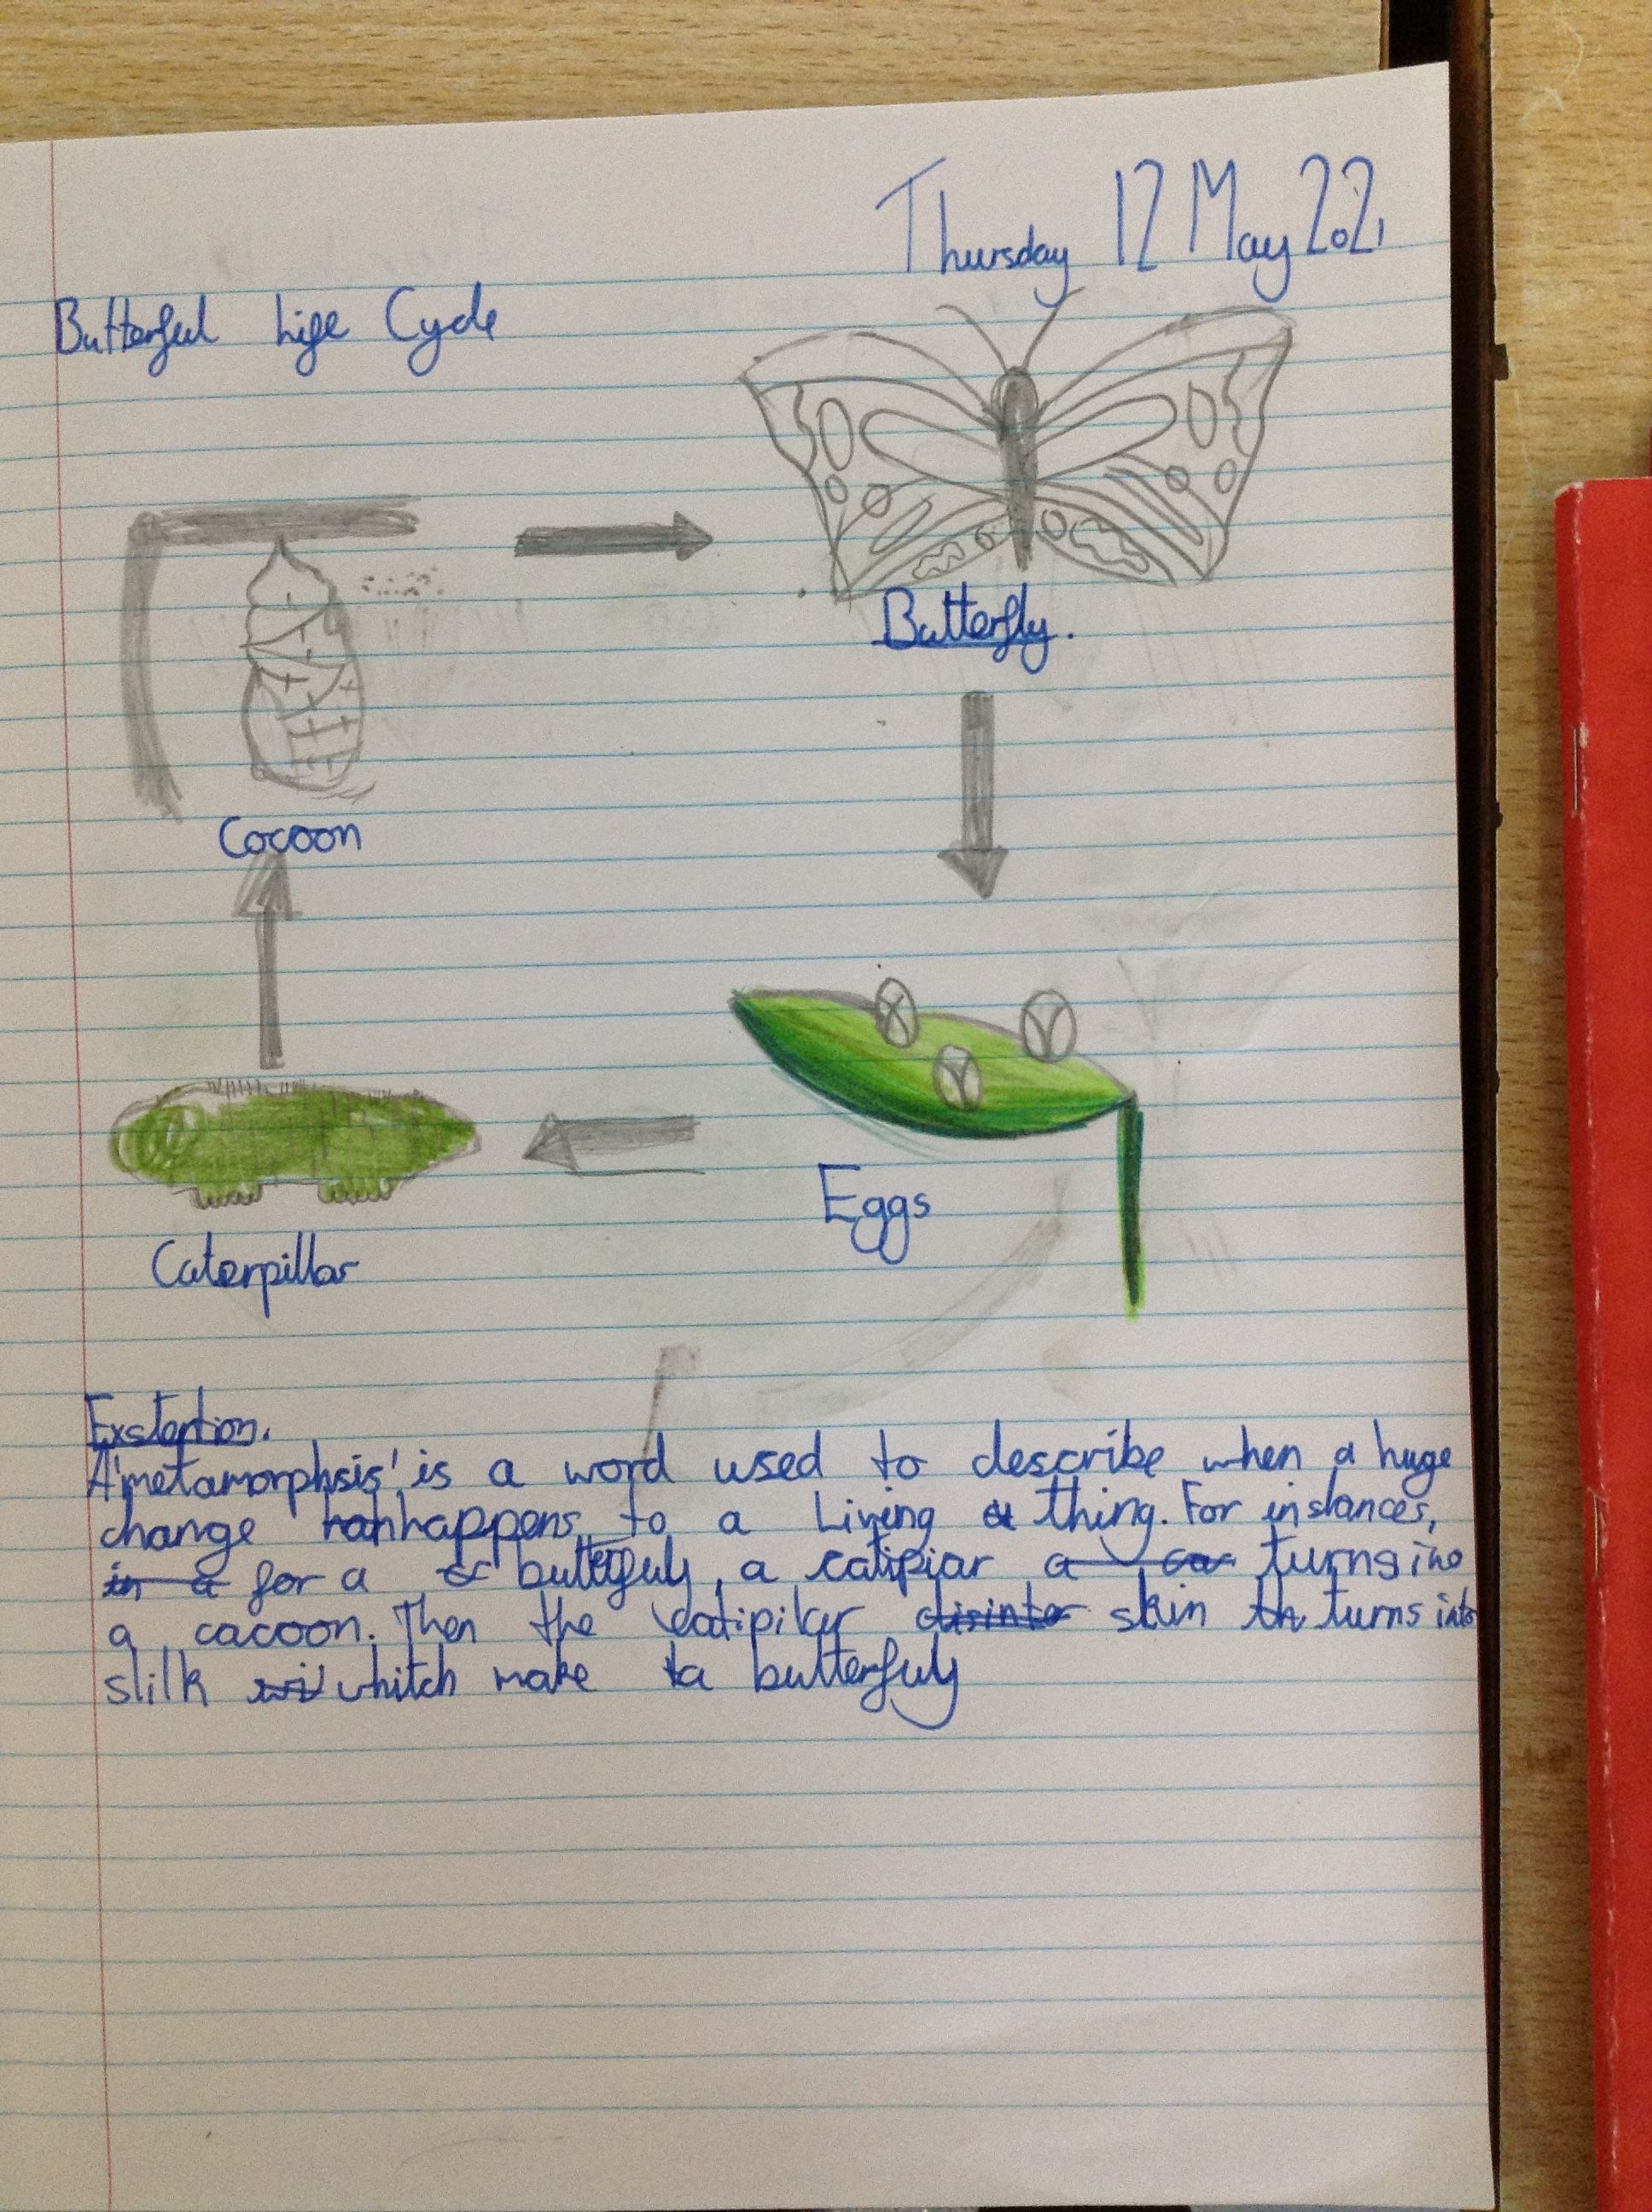 Thursday 12 May 2021
Butterful Life Cycle
Butterfly.
Cocoon
Eggs
Caterpillar
Exstention.
A 'metamorphsis' is a word used to describe when a huge
change happens to a Living thing. For instances,
for a butterfuly, a catipiar turns ino
a cacoon. Then the catipiler skin turns into
slilk whitch make a butterfuly